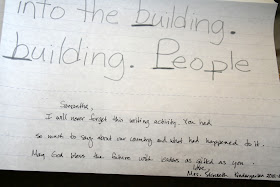 into the building.
building. People
Samantha,
I will never forget this writing activity. You had
so much to say about our country and what had happened to it.
May God bless the future with leaders as gifted as you.
Love,
Mrs. Kindergarten